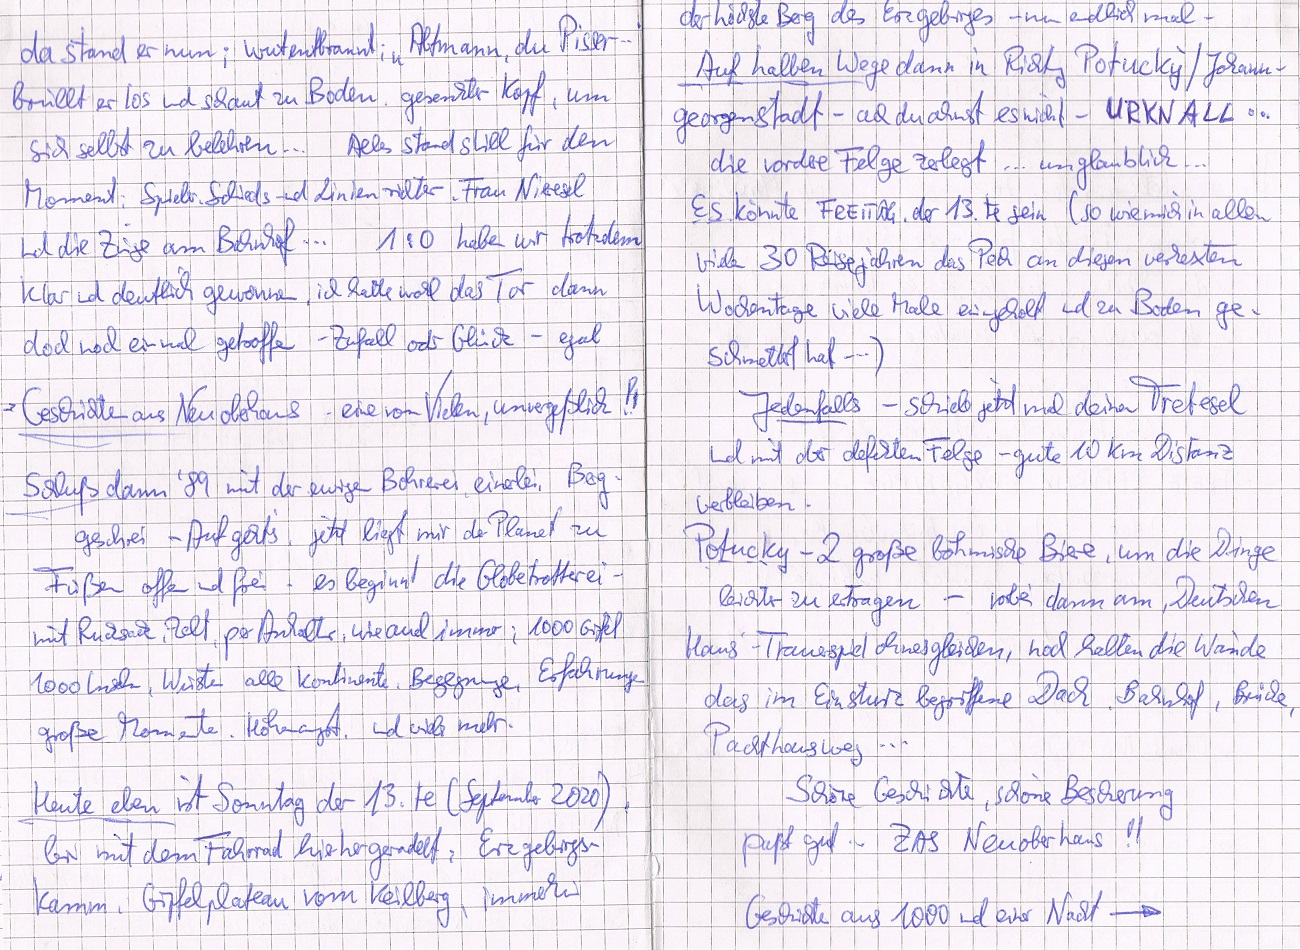 da stand er nun; wutentbrannt; "Altmann, du Pisser...
brüllt er los und schaut zu Boden. gesenkter Kopf, um
sich selbst zu belehren... Alles stand still für den
Moment: Spieler. Schieds- und Linienrichter. Frau
und die Züge am Bahnhof... 1:0 haben wir trotzdem
klar und deutlich gewonnen, ich hatte wohl das Tor dann
doch noch einmal getroffen - Zufall oder Glück - egal
→ Geschichte aus Neuoberhaus - eine von Vielen, unvergeßlich !!
Schluß dann '89 mit der ewigen Bohrerei, einerlei, Berg-
geschrei - Auf geht's, jetzt liegt mir der Planet zu
Füßen offen und frei. es beginnt die Globetrotterei -
mit Rucksack, Zelt, per Anhalter, wie auch immer; 1000 Gipfel
1000 Inseln, Wüsten alle Kontinente. Begegnungen, Erfahrungen
große Momente. Höhenangst. und vieles mehr.
Heute eben ist Sonntag der 13.te (September 2020),
bin mit dem Fahrrad hierhergeradelt; Erzgebirgs-
kamm. Gipfelplateau vom Keilberg, immerhin
der höchste Berg des Erzgebirges - nun endlich mal -
Auf halben Wege dann in Richtg Potucky/Johann-
georgenstadt - ach du ahnst es nicht - URKNALL ...
die vordere Felge zerlegt ... unglaublich ...
Es könnte FREITAG. der 13.te sein (so wie mich in allen
vielen 30 Reisejahren das Pech an diesen verhexten
Wochentage viele Male eingeholt und zu Boden ge-
schmettert hat ...)
Jedenfalls - schieb jetzt mal deinen Tretesel
und mit der defekten Felge - gute 10 km Distanz
verbleiben.
Potucky - 2 große böhmische Biere, um die Dinge
leichter zu ertragen - vorbei dann am "Deutschen
Haus" - Trauerspiel ohnesgleichen, noch halten die Wände
das im Einsturz begriffene Dach. Bahnhof, Brücke,
Pachthausweg ...
Schöne Geschichte, schöne Bescherung
paßt gut .. ZAS Neuoberhaus !!
Geschichte aus 1000 und einer Nacht →